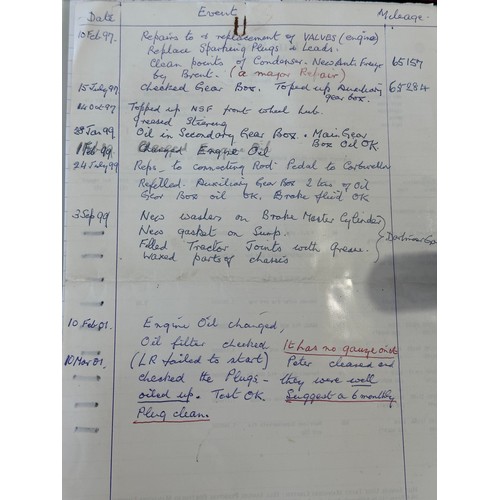 Date Event Mileage.
10 Feb 97. Repairs to & replacement of VALVES (engine)
Replace Sparking Plugs & Leads.
Clean points of Condenser. New Anti Freeze 65157
by Brent. (a major Repair)
15 July 97 Checked Gear Box. Toped up Auxiliary 65284
gear box.
Oct 97 Topped up NSF front wheel hub.
greased Steering
28 Jan 99 Oil in Secondary Gear Box. Main Gear
Box Oil OK
1 Feb 99 Changed Engine Oil
24 July 99 Reps to connecting Rod- Pedal to Carburettor
Refilled. Auxiliary Gear Box 2 tins of Oil
Gear Box oil OK. Brake fluid OK
3 Sep 99 New washers on Brake Master Cylinder
New gasket on Sump.
Filled Tractor Joints with grease.
Waxed parts of chassis
10 Feb 01. Engine Oil changed,
Oil filter checked It has no gauze on it
10 Mar 01. (LR failed to start) Peter cleaned and
checked the Plugs - they were well
oiled up. Test OK. Suggest a 6 monthly
Plug clean.